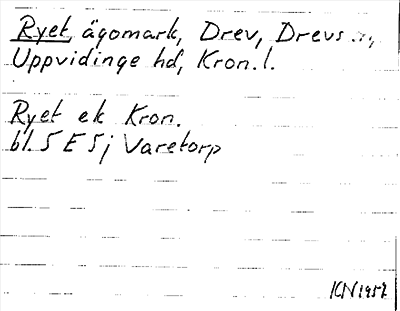 Ryet, ägomark, Drev, Drevs sn,
Uppvidinge hd, Kron. l.
Ryet ek Kron.
bl. 5 E 5 j Varetorp
KN 1952